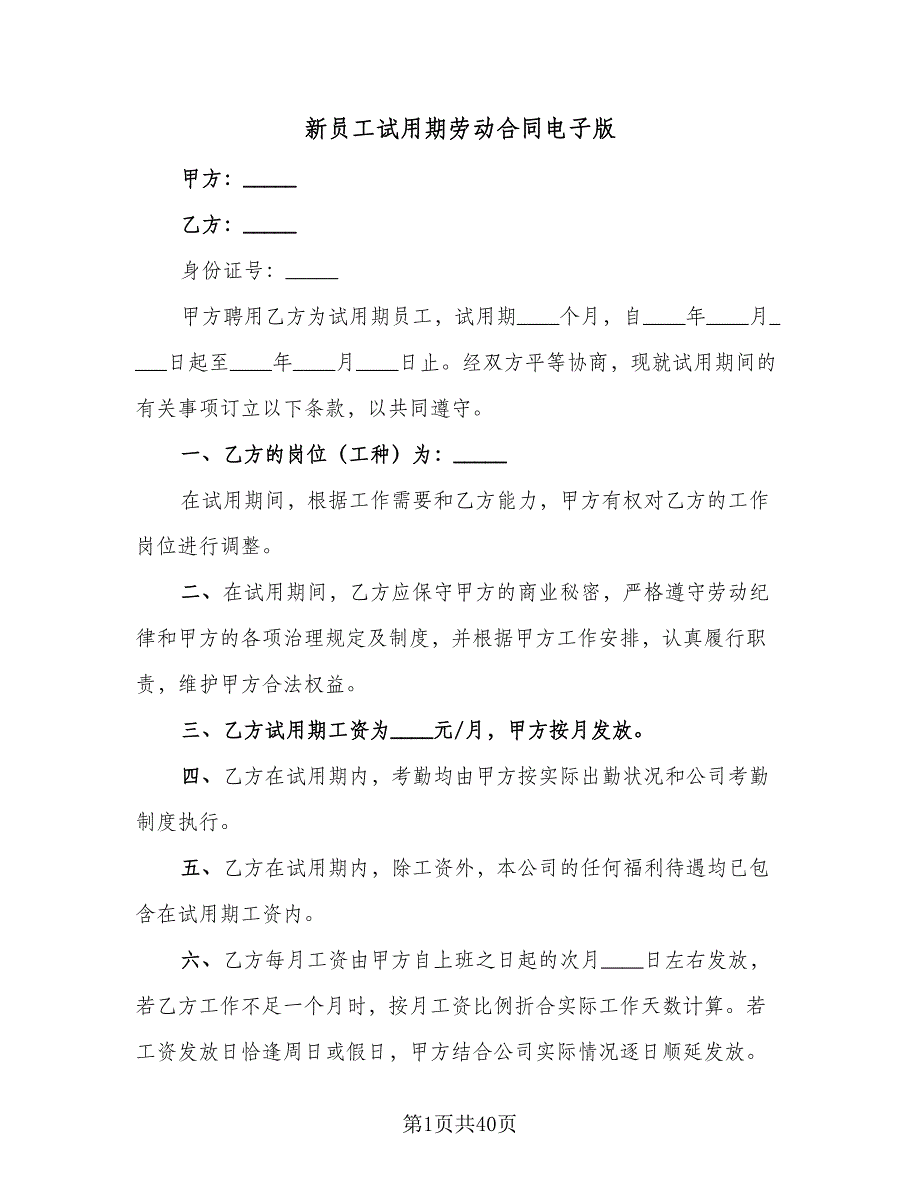 新员工试用期劳动合同电子版
甲方：_____
乙方：_____
身份证号：_____
甲方聘用乙方为试用期员工，试用期____个月，自____年____月_
___日起至____年____月____日止。经双方平等协商，现就试用期间的
有关事项订立以下条款，以共同遵守。
一、乙方的岗位（工种）为：_____
在试用期间，根据工作需要和乙方能力，甲方有权对乙方的工作
岗位进行调整。
二、在试用期间，乙方应保守甲方的商业秘密，严格遵守劳动纪
律和甲方的各项治理规定及制度，并根据甲方工作安排，认真履行职
责，维护甲方合法权益。
三、乙方试用期工资为____元/月，甲方按月发放。
四、乙方在试用期内，考勤均由甲方按实际出勤状况和公司考勤
制度执行。
五、乙方在试用期内，除工资外，本公司的任何福利待遇均已包
含在试用期工资内。
六、乙方每月工资由甲方自上班之日起的次月____日左右发放，
若乙方工作不足一个月时，按月工资比例折合实际工作天数计算。若
工资发放日恰逢周日或假日，甲方结合公司实际情况逐日顺延发放。
第1页共40页